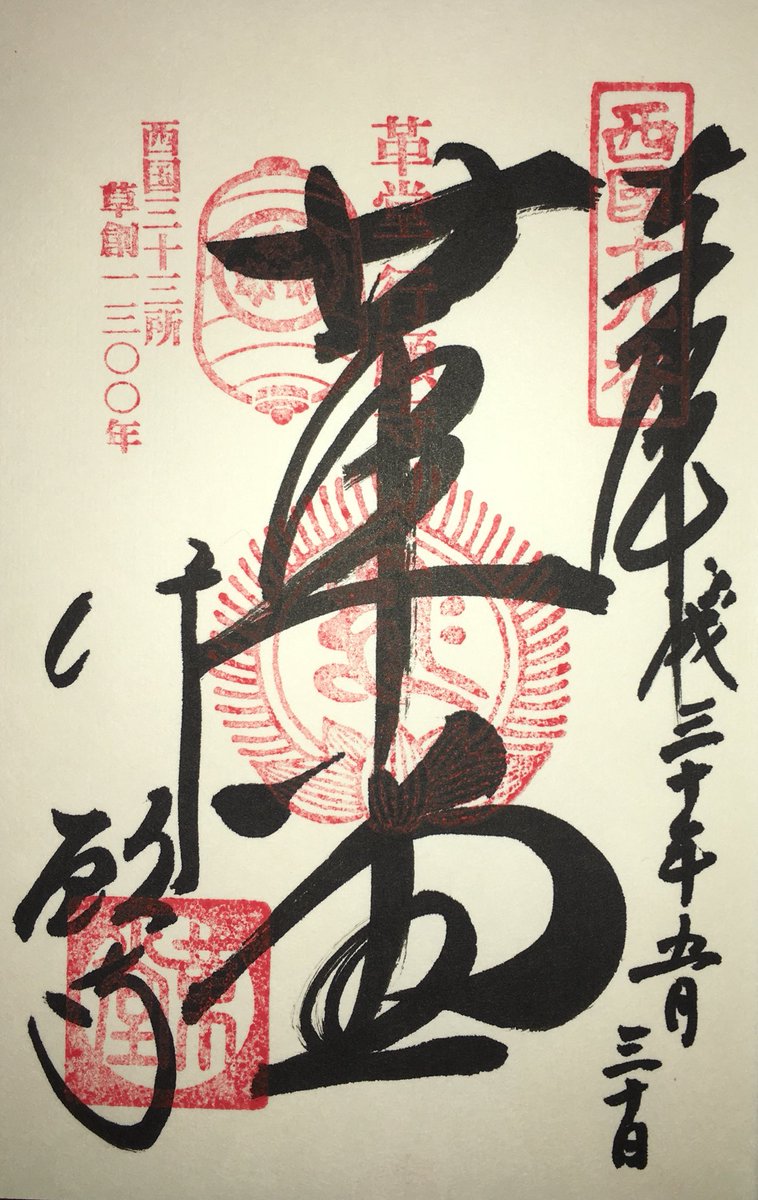 奉拝
平成三十年五月三十日
西国十九番
革堂
革堂行願寺
行願寺
西国三十三所
草創一三〇〇年
革堂